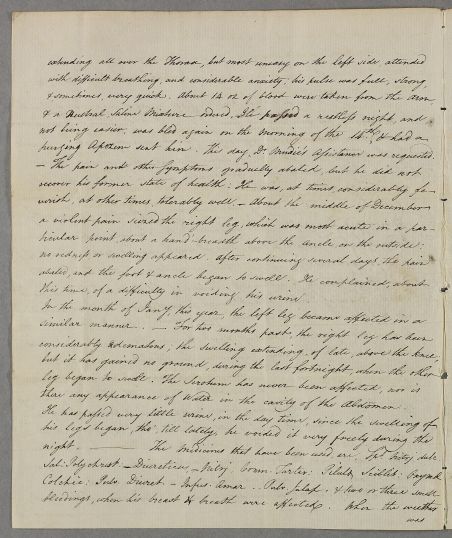 extending all over the Thorax, but most uneasy on the left side, attended
with difficult breathing, and considerable anxiety, his pulse was full, strong,
& sometimes, very quick. About 14 oz of blood were taken from the arm
& a Neutral Saline Mixture ordered. He passed a restless night, and
not being easier, was bled again on the morning of the 14th, & had a
purging Apozem sent him. This day Dr. Mudie's Assistance was requested.
– The pain and other symptoms gradually abated, but he did not
recover his former state of health: He was, at times considerably fe-
verish, at other times tolerably well. – About the middle of December
a violent pain seized the right leg, which was most acute in a par-
ticular point, about a hand-breadth above the ancle on the outside:
no redness or swelling appeared. After continuing several days the pain
abated, and the foot & ancle began to swell. He complained, about
this time, of a difficulty in voiding his urine.
In the month of Jany. this year, the left leg became affected in a
similar manner. – For two months past, the right leg has been
considerably œdematous, the swelling extending, of late, above the knee,
but it has gained no ground, during the last fortnight, when the other
leg began to swell. The Scrotum has never been affected, nor is
there any appearance of Water in the cavity of the Abdomen.
He has passed very little urine, in the day time, since the swelling of
his legs began, tho' till lately, he voided it very freely during the
night. — The Medicines that have been used, are, Spt. Nitri, dulc.
Sal: Polychrest. – Diureticus, – Nitri. Crem: Tartar: Pilulæ Scillit: Oxymel
Colchic: Pulv. Diuret. – Infus: Amar: . Pulv. Jalap. & two or three small
bleedings, when his breast & breath were affected. When the weather
was